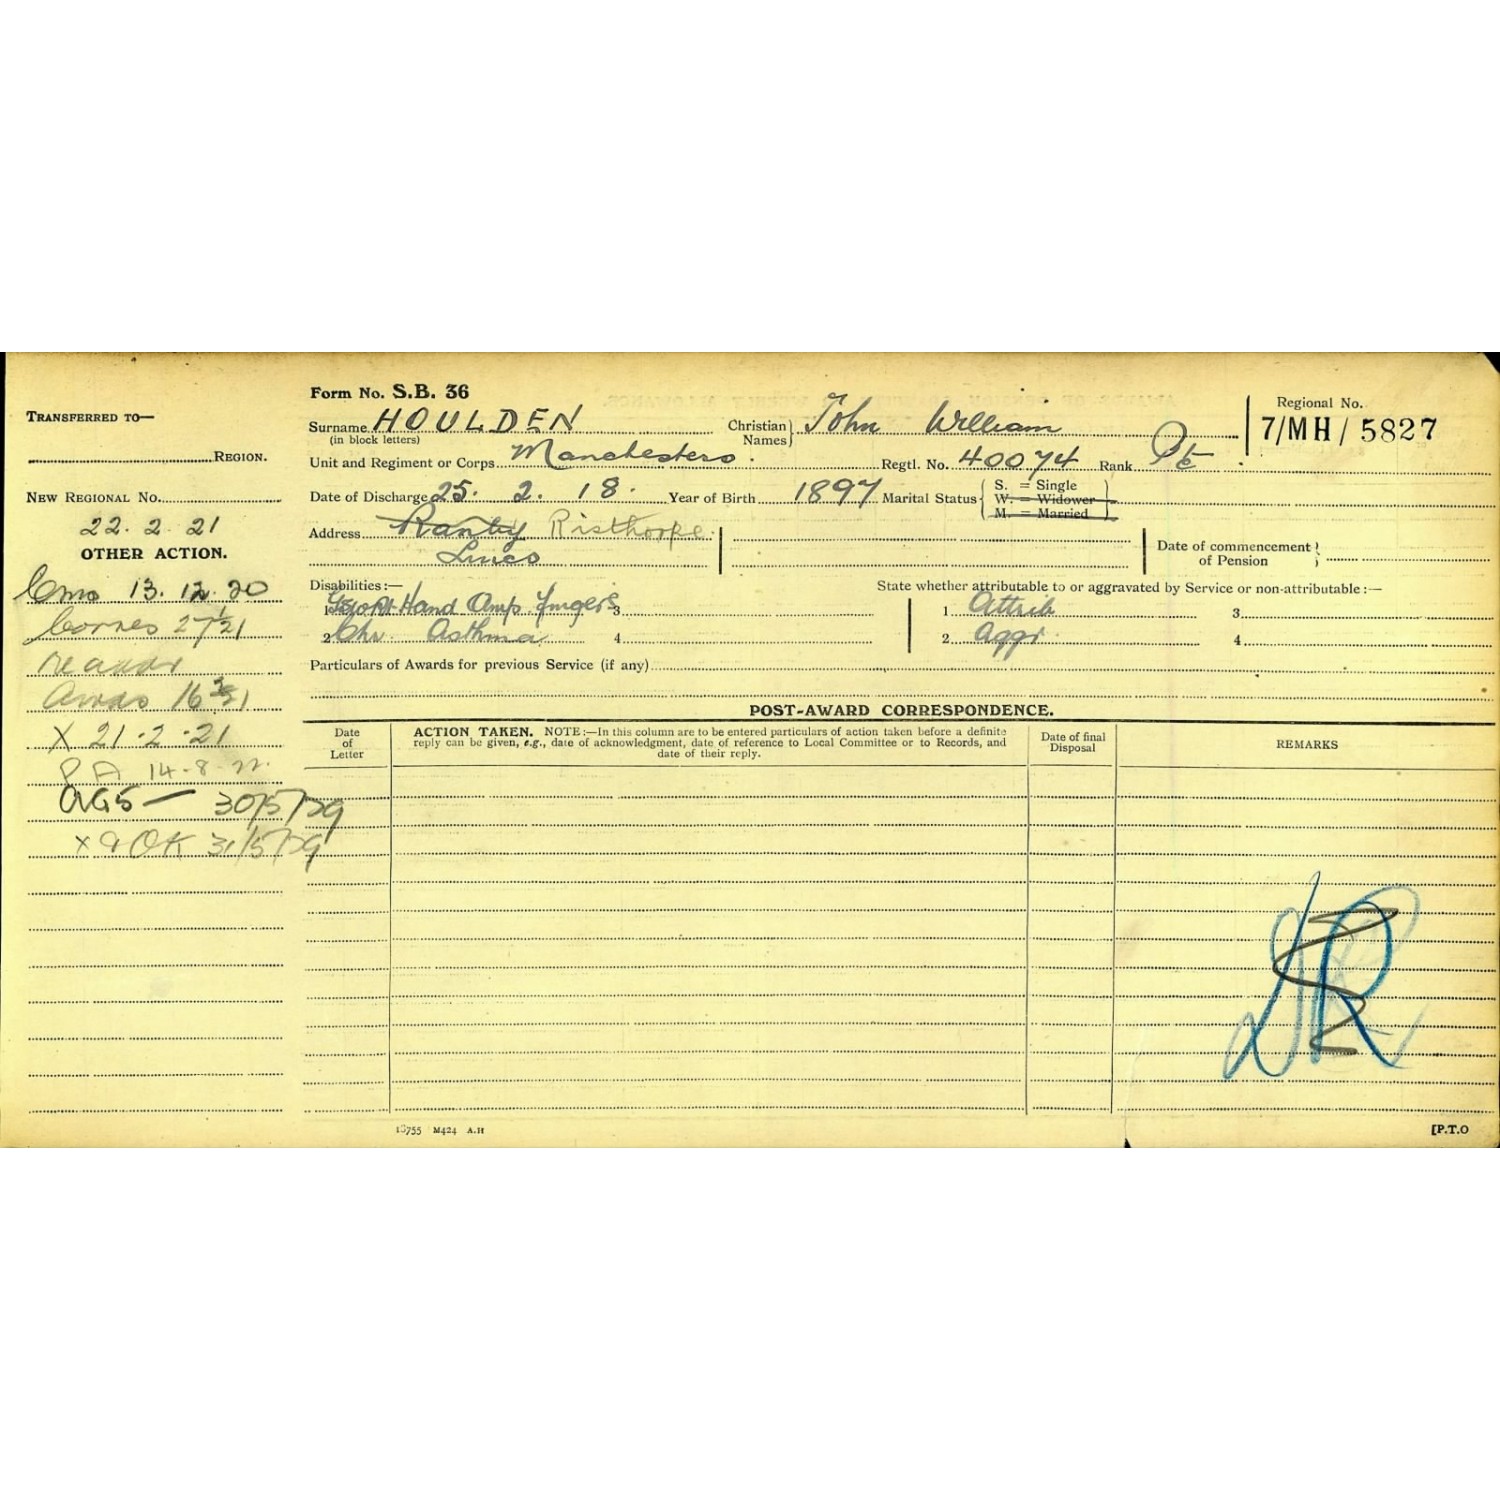 Form No. S.B. 36
TRANSFERRED TO—
REGION.
NEW REGIONAL No.
22. 2. 21
OTHER ACTION.
13. 12. 20
X 21 . 2 . 21
P A 14 - 8 - 22.
30/5/29
OK 31/5/29
Surname HOULDEN
(in block letters)
Christian Names} John William
Regional No.
7/MH/ 5827
Unit and Regiment or Corps Manchesters. Regtl. No. 40074 Rank Pte
Date of Discharge 25. 2. 18. Year of Birth 1897 Marital Status { S. = Single
W. = Widower
M. = Married
Address Ranby Risthorpe
Lincs
Date of commencement of Pension }
Disabilities :— State whether attributable to or aggravated by Service or non-attributable :—
1 Hand Amp. fingers 3 1 Attrib 3
2 Chr. Asthma 4 2 Aggr. 4
Particulars of Awards for previous Service (if any)
POST-AWARD CORRESPONDENCE.
Date of Letter
ACTION TAKEN. NOTE :—In this column are to be entered particulars of action taken before a definite
reply can be given, e.g., date of acknowledgment, date of reference to Local Committee or to Records, and
date of their reply.
Date of final Disposal
REMARKS
M424 A.H
[P.T.O